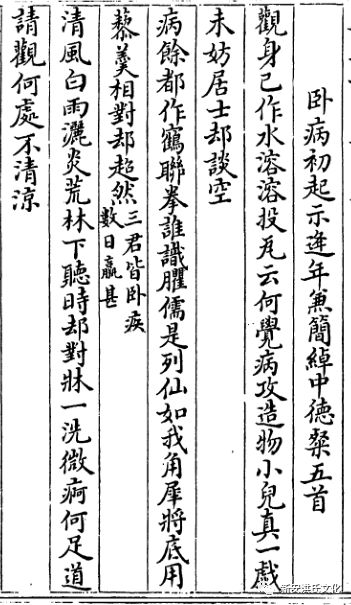 卧病初起示逢年兼簡綽中德粲五首
觀身已作水溶溶投瓦云何覺病攻造物小兒真一戲
未妨居士却談空
病餘都作鶴聯拳誰識臞儒是列仙如我角犀將底用
藜羹相對却超然三君皆卧疾
數日羸甚
清風白雨灑炎荒林下聽時却對牀一洗微痾何足道
請觀何處不清涼
新安洪氏文化